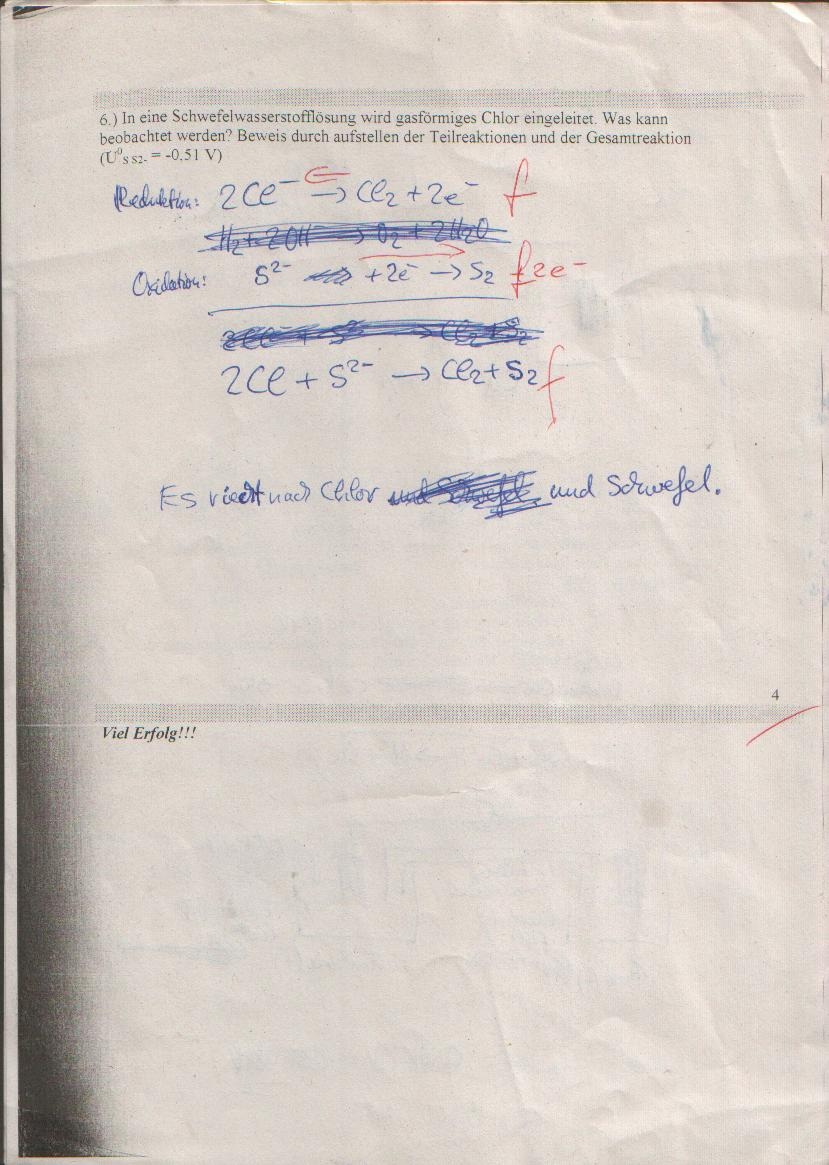 6.) In eine Schwefelwasserstofflösung wird gasförmiges Chlor eingeleitet. Was kann
beobachtet werden? Beweis durch aufstellen der Teilreaktionen und der Gesamtreaktion
(U⁰s s2- = -0.51 V)
Reduktion: 2Cl⁻ → Cl₂ + 2e⁻ f
H₂ + 2OH⁻ → O₂ + 2H₂O
Oxidation: S²⁻ + 2e⁻ → S₂ f 2e⁻
2Cl + S²⁻ → Cl₂ + S₂ f
Es riecht nach Chlor und Schwefel.
4
Viel Erfolg!!!